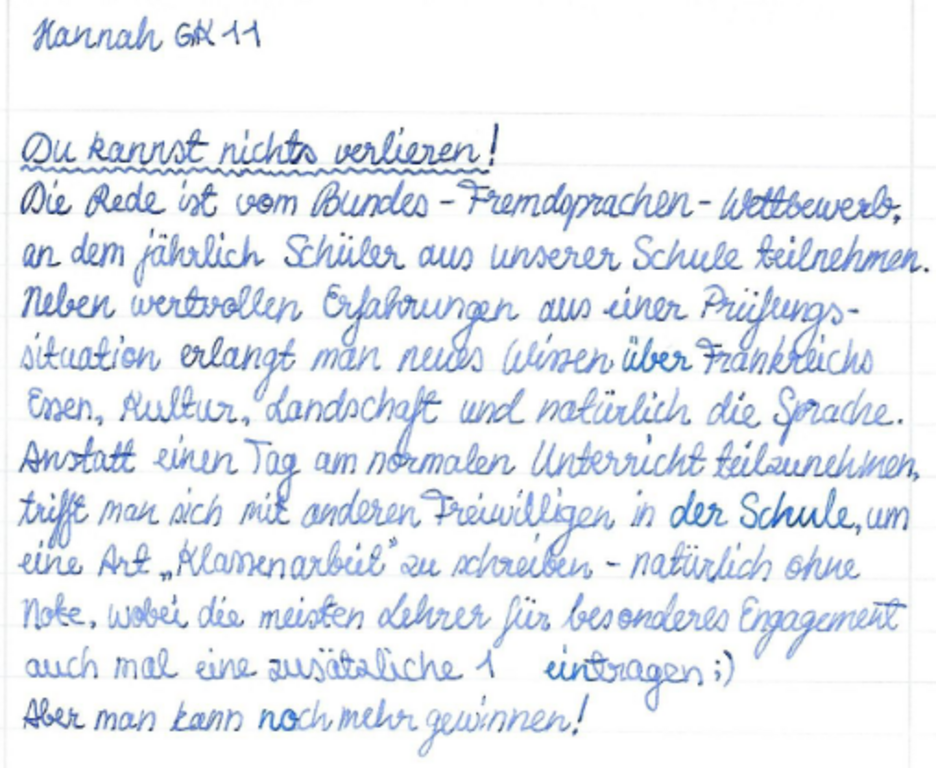 Hannah GK 11
Du kannst nichts verlieren!
Die Rede ist vom Bundes-Fremdsprachen-Wettbewerb,
an dem jährlich Schüler aus unserer Schule teilnehmen.
Neben wertvollen Erfahrungen aus einer Prüfungs-
situation erlangt man neues Wissen über Frankreichs
Essen, Kultur, Landschaft und natürlich die Sprache.
Anstatt einen Tag am normalen Unterricht teilzunehmen,
trifft man sich mit anderen Freiwilligen in der Schule, um
eine Art „Klassenarbeit“ zu schreiben - natürlich ohne
Note, wobei die meisten Lehrer für besonderes Engagement
auch mal eine zusätzliche 1 eintragen ;)
Aber man kann noch mehr gewinnen!